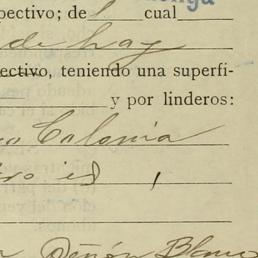 pectivo; de l cual
de hay
ectivo, teniendo una superfi-
y por linderos:
Colonia
es
Peñón Blanco